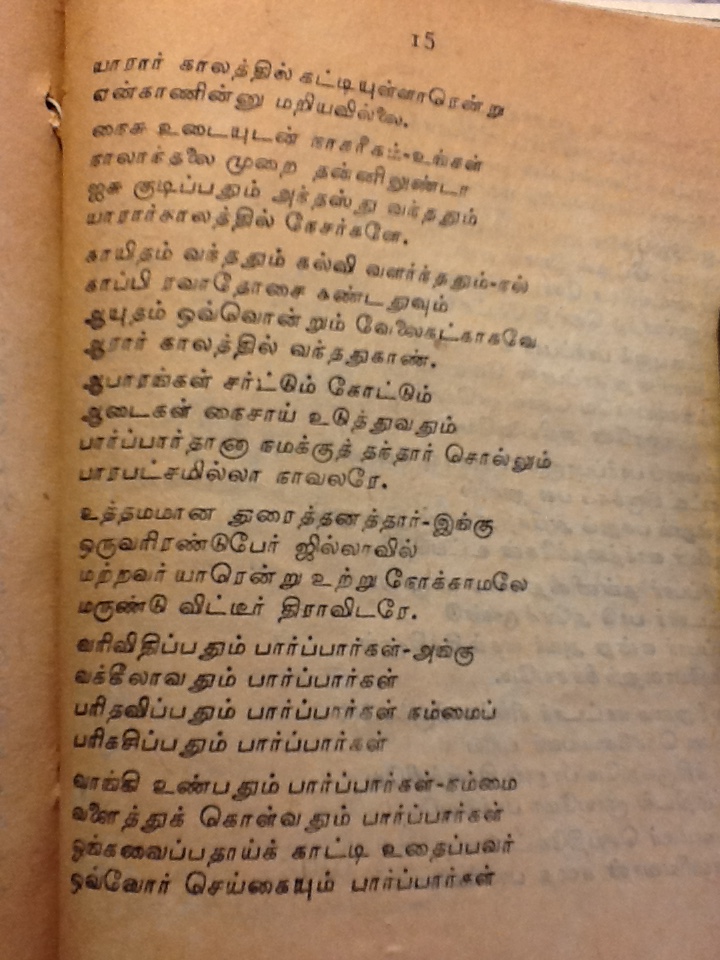 15
யாரார் காலத்தில் கட்டியுள்ளாரென்று
ஏன்காணின்னு மறியவில்லை.
நைசு உடையுடன் நாகரீகம்-உங்கள்
நாலாந்தலை முறை தன்னிலுண்டா
ஐசு குடிப்பதும் அந்தஸ்து வந்ததும்
யாரார்காலத்தில் நேசர்களே.
காயிதம் வந்ததும் கல்வி வளர்ந்ததும்-நல்
காப்பி ரவாதோசை கண்டதுவும்
ஆயுதம் ஒவ்வொன்றும் வேலைகட்காகவே
ஆரார் காலத்தில் வந்ததுகாண்.
ஆபாரங்கள் சர்ட்டும் கோட்டும்
ஆடைகள் நைசாய் உடுத்துவதும்
பார்ப்பார்தானா நமக்குத் தந்தார் சொல்லும்
பாரபட்சமில்லா நாவலரே.
உத்தமமான துரைத்தனத்தார்-இங்கு
ஒருவரிரண்டுபேர் ஜில்லாவில்
மற்றவர் யாரென்று உற்று நோக்காமலே
மருண்டு விட்டீர் திராவிடரே.
வரிவிதிப்பதும் பார்ப்பார்கள்-அங்கு
வக்கீலாவதும் பார்ப்பார்கள்
பரிதவிப்பதும் பார்ப்பார்கள் நம்மைப்
பரிகசிப்பதும் பார்ப்பார்கள்
வாங்கி உண்பதும் பார்ப்பார்கள்-நம்மை
வளைத்துக் கொள்வதும் பார்ப்பார்கள்
ஓங்கவைப்பதாய்க் காட்டி உதைப்பவர்
ஒவ்வோர் செய்கையும் பார்ப்பார்கள்